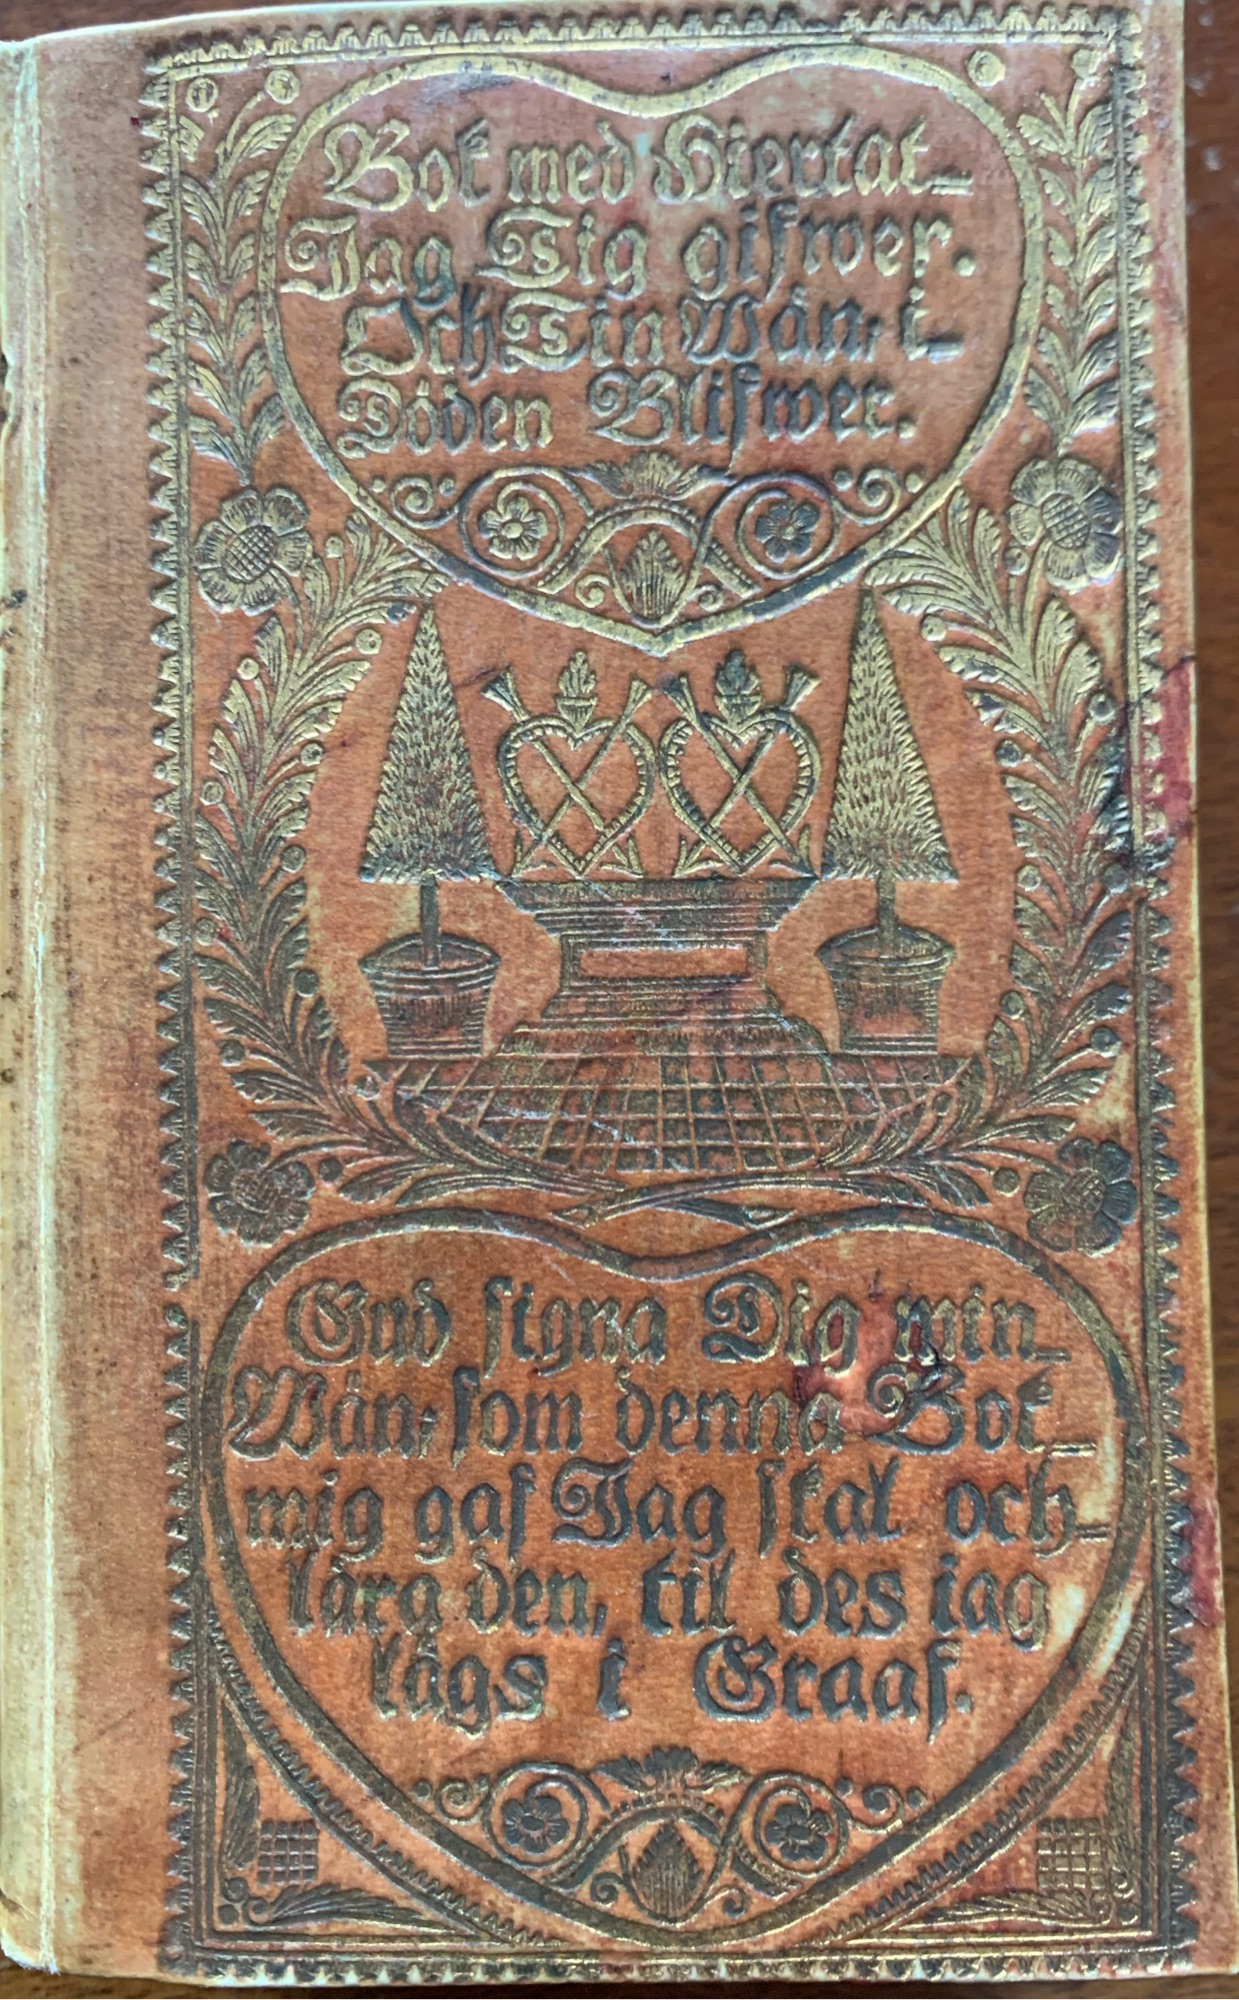 Bok med Hiertat=
Jag Tig gifwer.
Och Tin Wän, i=
Döden Blifwer.
Gud signa Dig min=
Wän, som denna Bok=
mig gaf Jag skal och=
lära den, til des jag
lägs i Graaf.